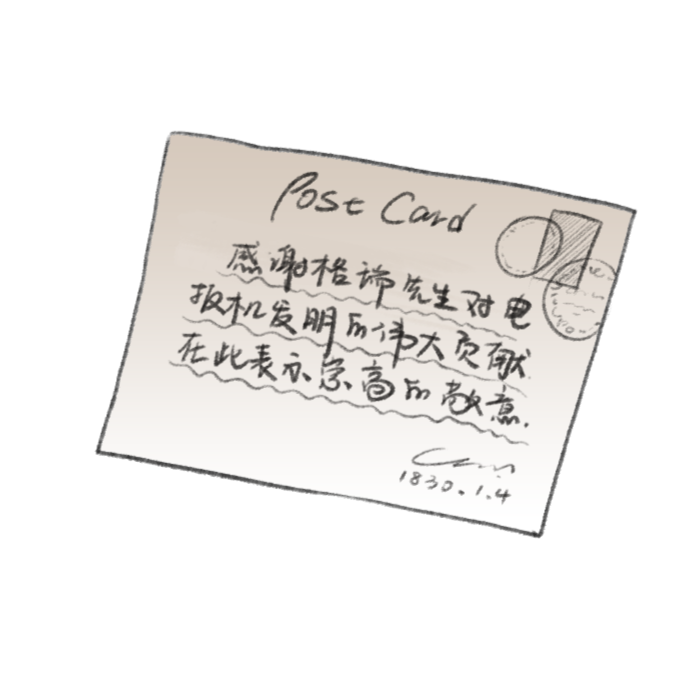 Post Card
感谢格蒂先生对电
报机发明的伟大贡献
在此表示崇高的敬意.
1830.1.4